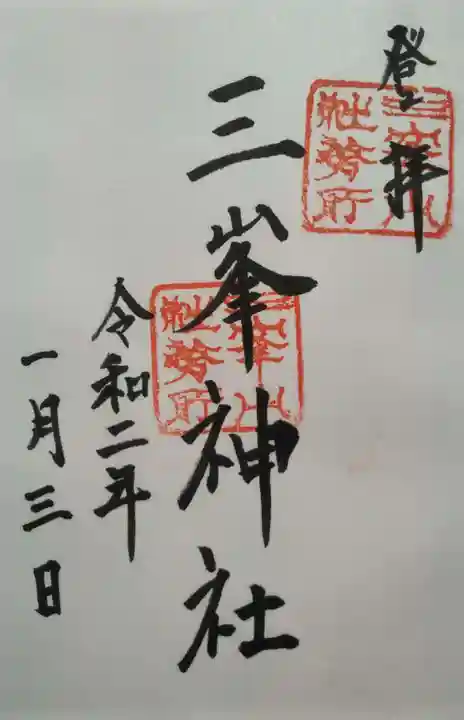 登拝
三峯山
社務所
三峯神社
三峯山
社務所
令和二年
一月三日